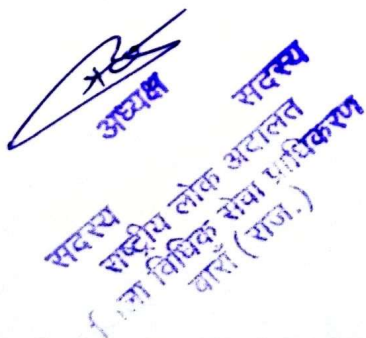 अध्यक्ष
सदस्य
सदस्य
राष्ट्रीय लोक अदालत
विधिक सेवा प्राधिकरण
बारॉं (राज.)